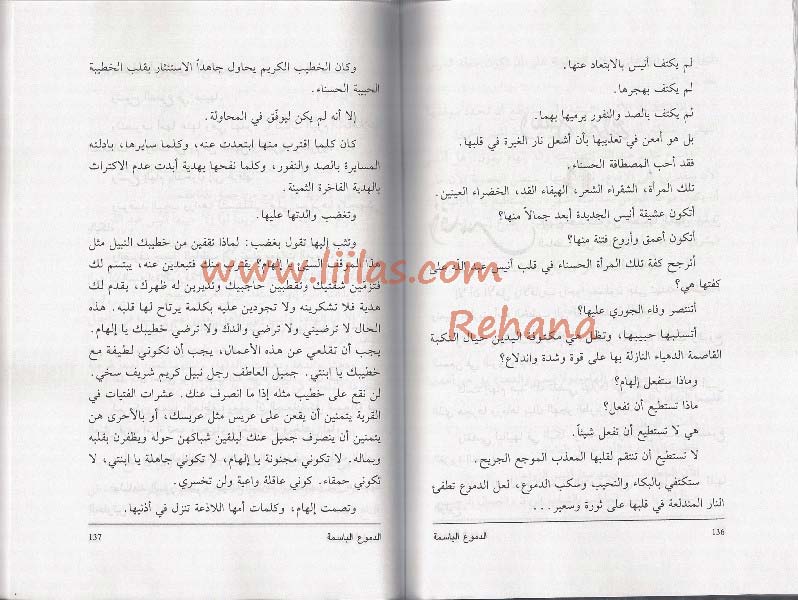 لم يكتف أنيس بالابتعاد عنها.
لم يكتف بهجرها.
لم يكتف بالصد والنفور يرميها بهما.
بل هو أمعن في تعذيبها بأن أشعل نار الغيرة في قلبها.
فقد أحب المصطافة الحسناء.
تلك المرأة، الشقراء الشعر، الهيفاء القد، الخضراء العينين.
أتكون عشيقة أنيس الجديدة أبعد جمالاً منها؟
أتكون أعمق وأروع فتنة منها؟
أترجح كفة تلك المرأة الحسناء في قلب أنيس عبد الله على
كفتها هي؟
أتنتصر وفاء الجوري عليها؟
أتسلبها حبيبها، وتظل هي مكتوفة اليدين حيال النكبة
القاصمة الدهياء النازلة بها على قوة وشدة واندلاع؟
وماذا ستفعل إلهام؟
ماذا تستطيع أن تفعل؟
هي لا تستطيع أن تفعل شيئاً.
لا تستطيع أن تنتقم لقلبها المعذب الموجع الجريح.
ستكتفي بالبكاء والنحيب وسكب الدموع، لعل الدموع تطفئ
النار المندلعة في قلبها على ثورة وسعير...
136 الدموع الباسمة
وكان الخطيب الكريم يحاول جاهداً الاستئثار بقلب الخطيبة
الحبيبة الحسناء.
إلا أنه لم يكن ليوفّق في المحاولة.
كان كلما اقترب منها ابتعدت عنه، وكلما سايرها، بادلته
المسايرة بالصد والنفور، وكلما نفحها بهدية أبدت عدم الاكتراث
بالهدية الفاخرة الثمينة.
وتغضب والدتها عليها.
وتثب إليها تقول بغضب: لماذا تقفين من خطيبك النبيل مثل
هذا الموقف السيئ يا إلهام؟ يقترب منك فتبعدين عنه، يبتسم لك
فتزمين شفتيك وتقطبين حاجبيك وتديرين له ظهرك، يقدم لك
هدية فلا تشكرينه ولا تجودين عليه بكلمة يرتاح لها قلبه. هذه
الحال لا ترضيني ولا ترضي والدك ولا ترضي خطيبك يا إلهام.
يجب أن تقلعي عن هذه الأعمال، يجب أن تكوني لطيفة مع
خطيبك يا ابنتي. جميل العاطف رجل نبيل كريم شريف سخي.
لن نقع على خطيب مثله إذا ما انصرف عنك. عشرات الفتيات في
القرية يتمنين أن يقعن على عريس مثل عريسك، أو بالأحرى هن
يتمنين أن ينصرف جميل عنك ليلقين شباكهن حوله ويظفرن بقلبه
وبماله. لا تكوني مجنونة يا إلهام، لا تكوني جاهلة يا ابنتي، لا
تكوني حمقاء. كوني عاقلة واعية ولن تخسري.
وتصمت إلهام، وكلمات أمها اللاذعة تنزل في أذنيها.
الدموع الباسمة 137
www.liilas.com
Rehana